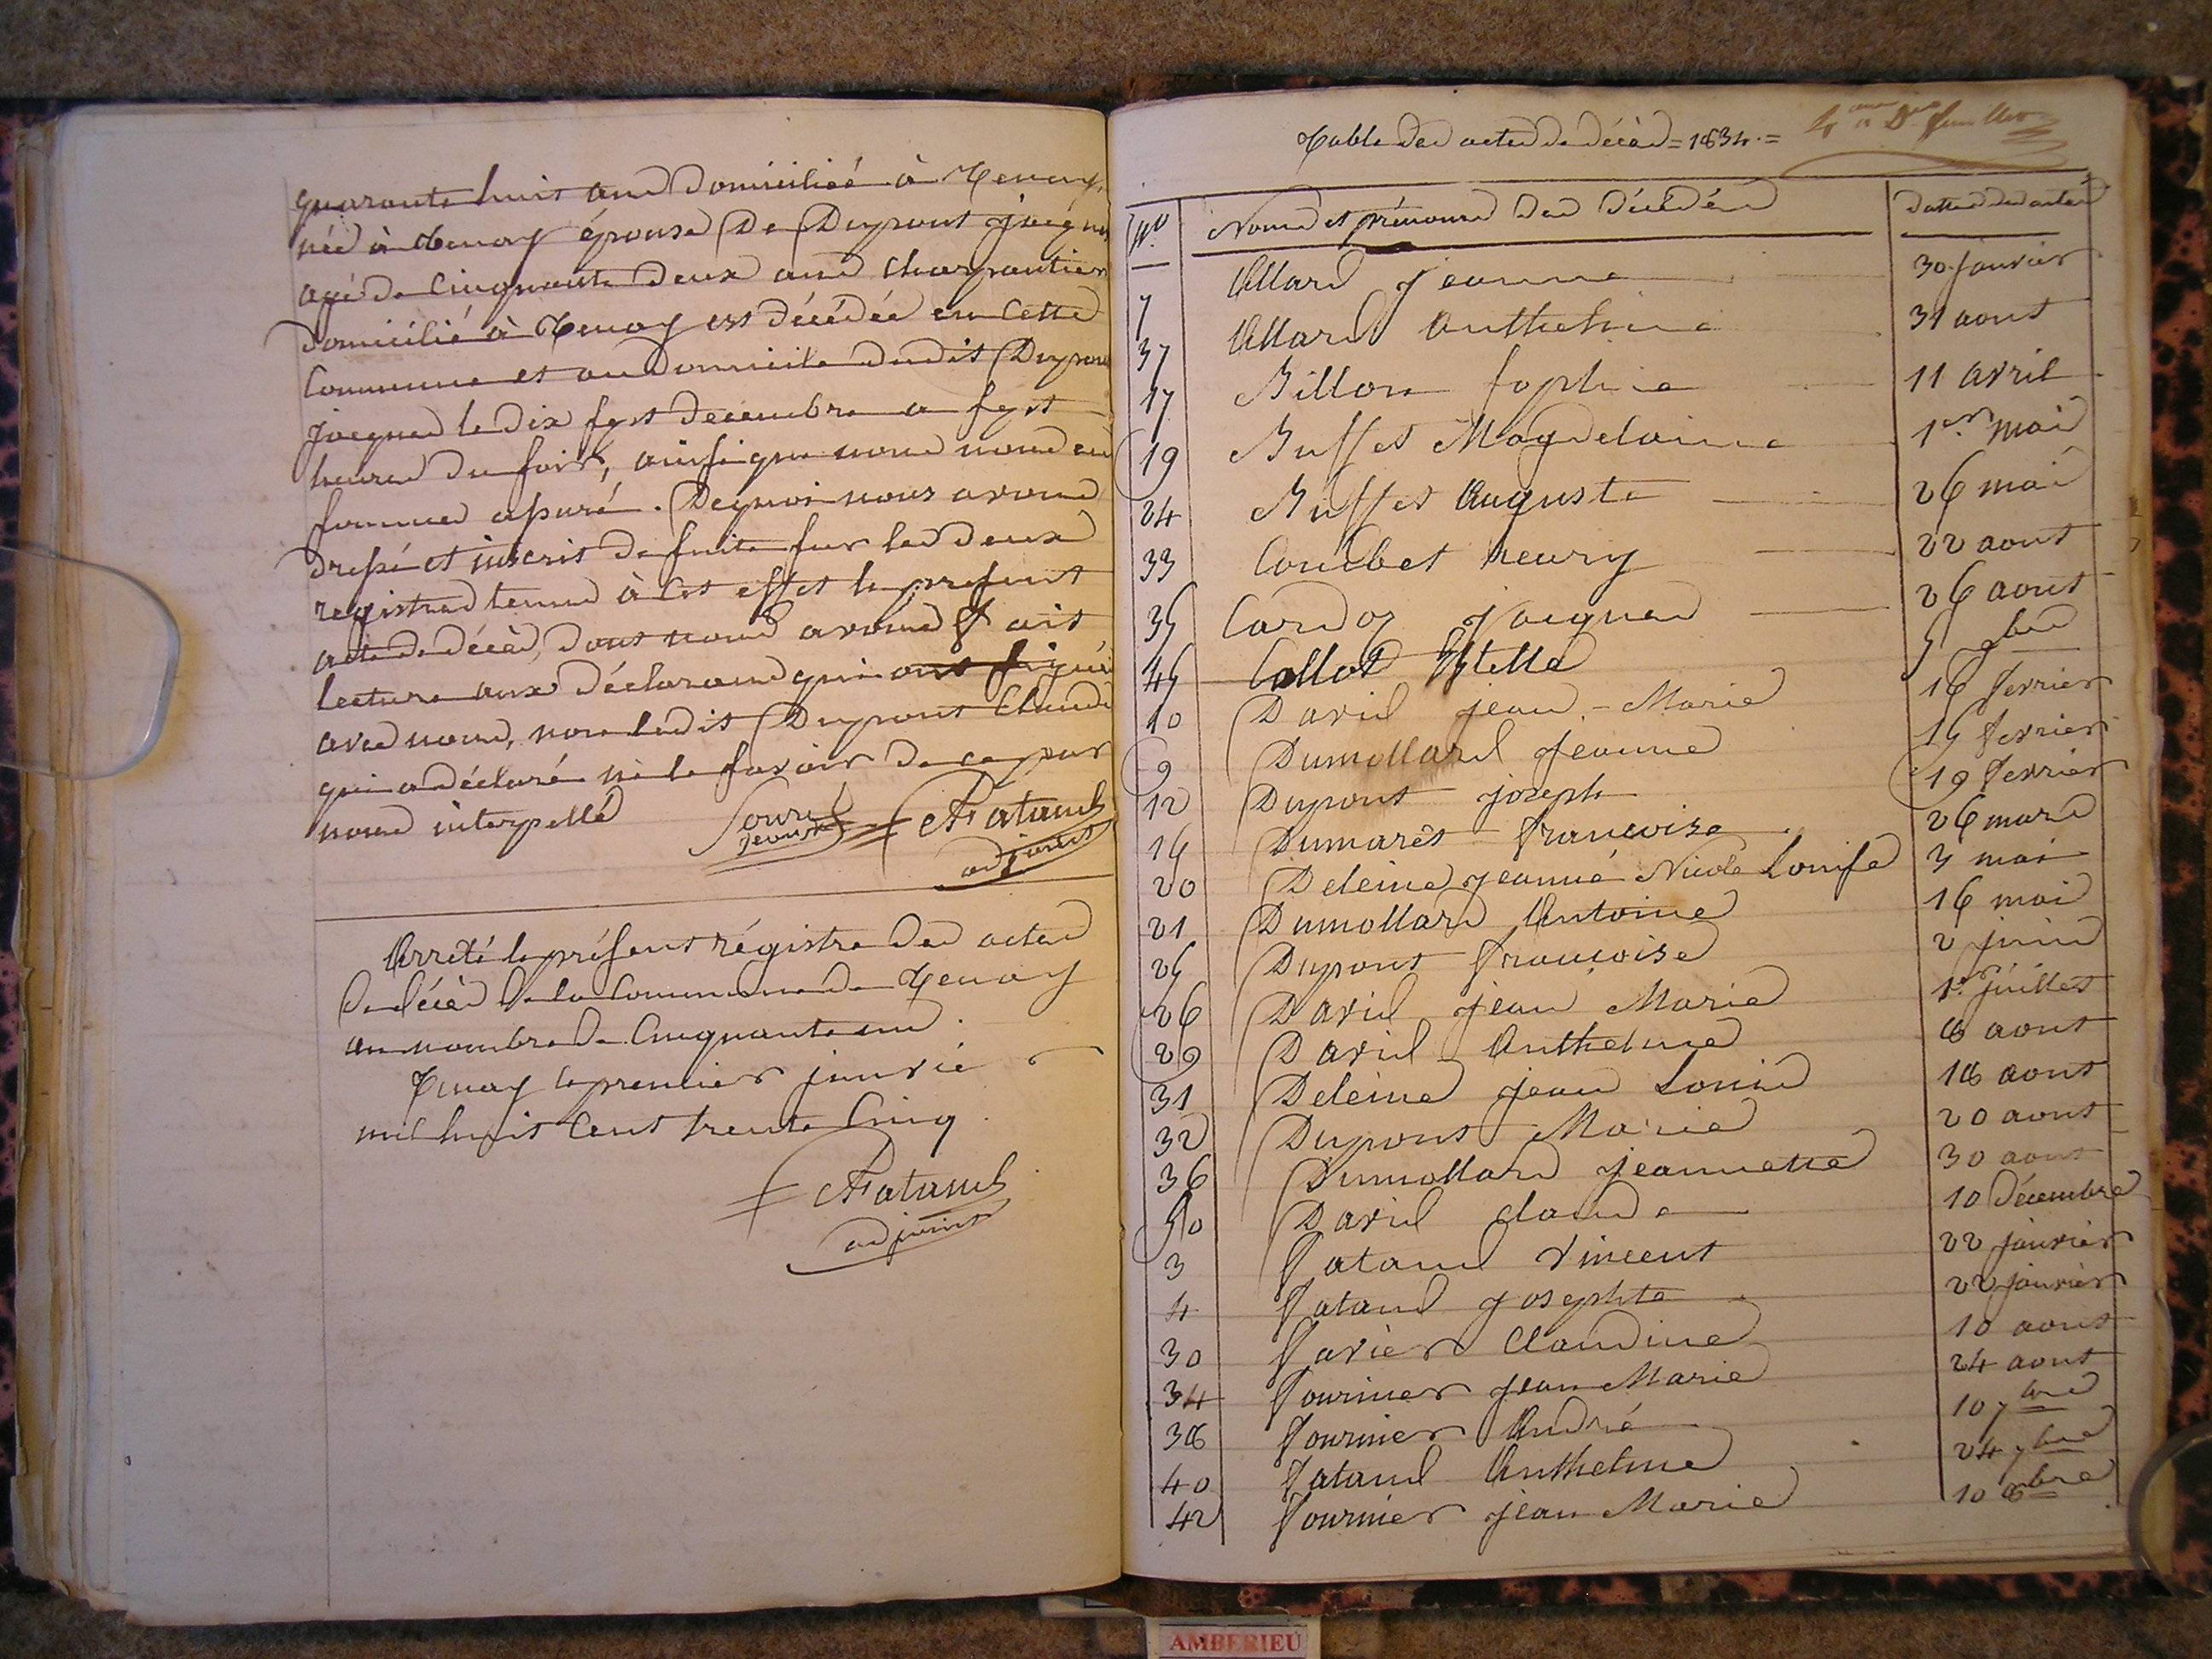 quarante huit ans domiciliée à Tenay,
née à Tenay épouse De Dupont jacques
agé de Cinquante deux ans Charpentier
domicilié à Tenay est décédée en Cette
Commune et au Domicile dudit Dupont
jacques le dix sept decembre a sept
heures du soir, ainsi que nous nous en
sommes assuré. Dequoi nous avons
dressé et inscrit de suite sur les deux
registres tenus à Cet effet le present
acte de décès, dont nous avons fait
lecture aux déclarans qui ont signé
avec nous, non ledit Dupont Claude
qui a déclaré ne le savoir de ce par
nous interpellé
F Fataud
adjoint
Arreté le présent régistre des actes
de décès de la Commune de Tenay
au nombre de Cinquante un.
Tenay le premier janvié
mil huit Cent trente Cinq.
F Fataud
adjoint
Table des actes de décès = 1834. =
No. Noms et prénoms des décédés dattes des actes
7 Allard jeanne 30 janvier
37 Allard Anthelme 31 aout
17 Billon sophie 11 avril
19 Buffet Magdelaine 1er mai
24 Buffet Auguste 26 mai
33 Coubet henry 22 aout
35 Cardoz jacques 26 aout
45 Collot Estelle 5 9bre
10 David jean-Marie 16 fevrier
9 Dumollard jeanne 15 fevrier
12 Dupont joseph 19 fevrier
15 Dumarêt francoise 26 mars
20 Deleine jeanne Nicole Louise 3 mai
21 Dumollard Antoine 16 mai
25 Dupont francoise 2 juin
26 David jean Marie 1er juillet
29 David Anthelme 8 aout
31 Deleine jean Louis 18 aout
32 Dupont Marie 20 aout
36 Dumollard jeannette 30 aout
50 David claude 10 décembre
3 Fataud Vincent 22 janvier
4 Fataud josephte 22 janvier
30 Favier Claudine 10 aout
34 Fournier jean Marie 24 aout
38 Fournier André 10 7bre
40 Fataud Anthelme 24 7bre
42 Fournier jean Marie 10 8bre
AMBERIEU